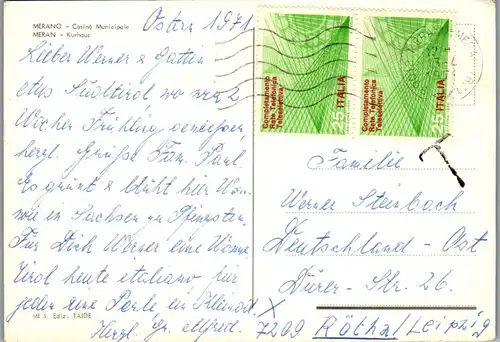 MERANO - Casinò Municipale
MERAN - Kurhaus
Ostern 1971
Lieber Werner & Gattin
aus Südtirol wo wir 2
Wochen Frühling geniessen
herzl. Grüße Fam. Paul
Es grünt & blüht hier
wie in Sachsen zu Pfingsten.
Für Dich Werner eine Wonne
Tirol heute italiano, für
jeden eine Perle ein
Herzl. Gr. Alfred.
ME 3 Ediz. TAIDE
Completamento
Rete Telefonica
Teleselettiva
25 ITALIA
Completamento
Rete Telefonica
Teleselettiva
25 ITALIA
T
Familie
Werner Steinbach
Deutschland - Ost
Dürer - Str. 26.
X
7209 Rötha/Leipzig